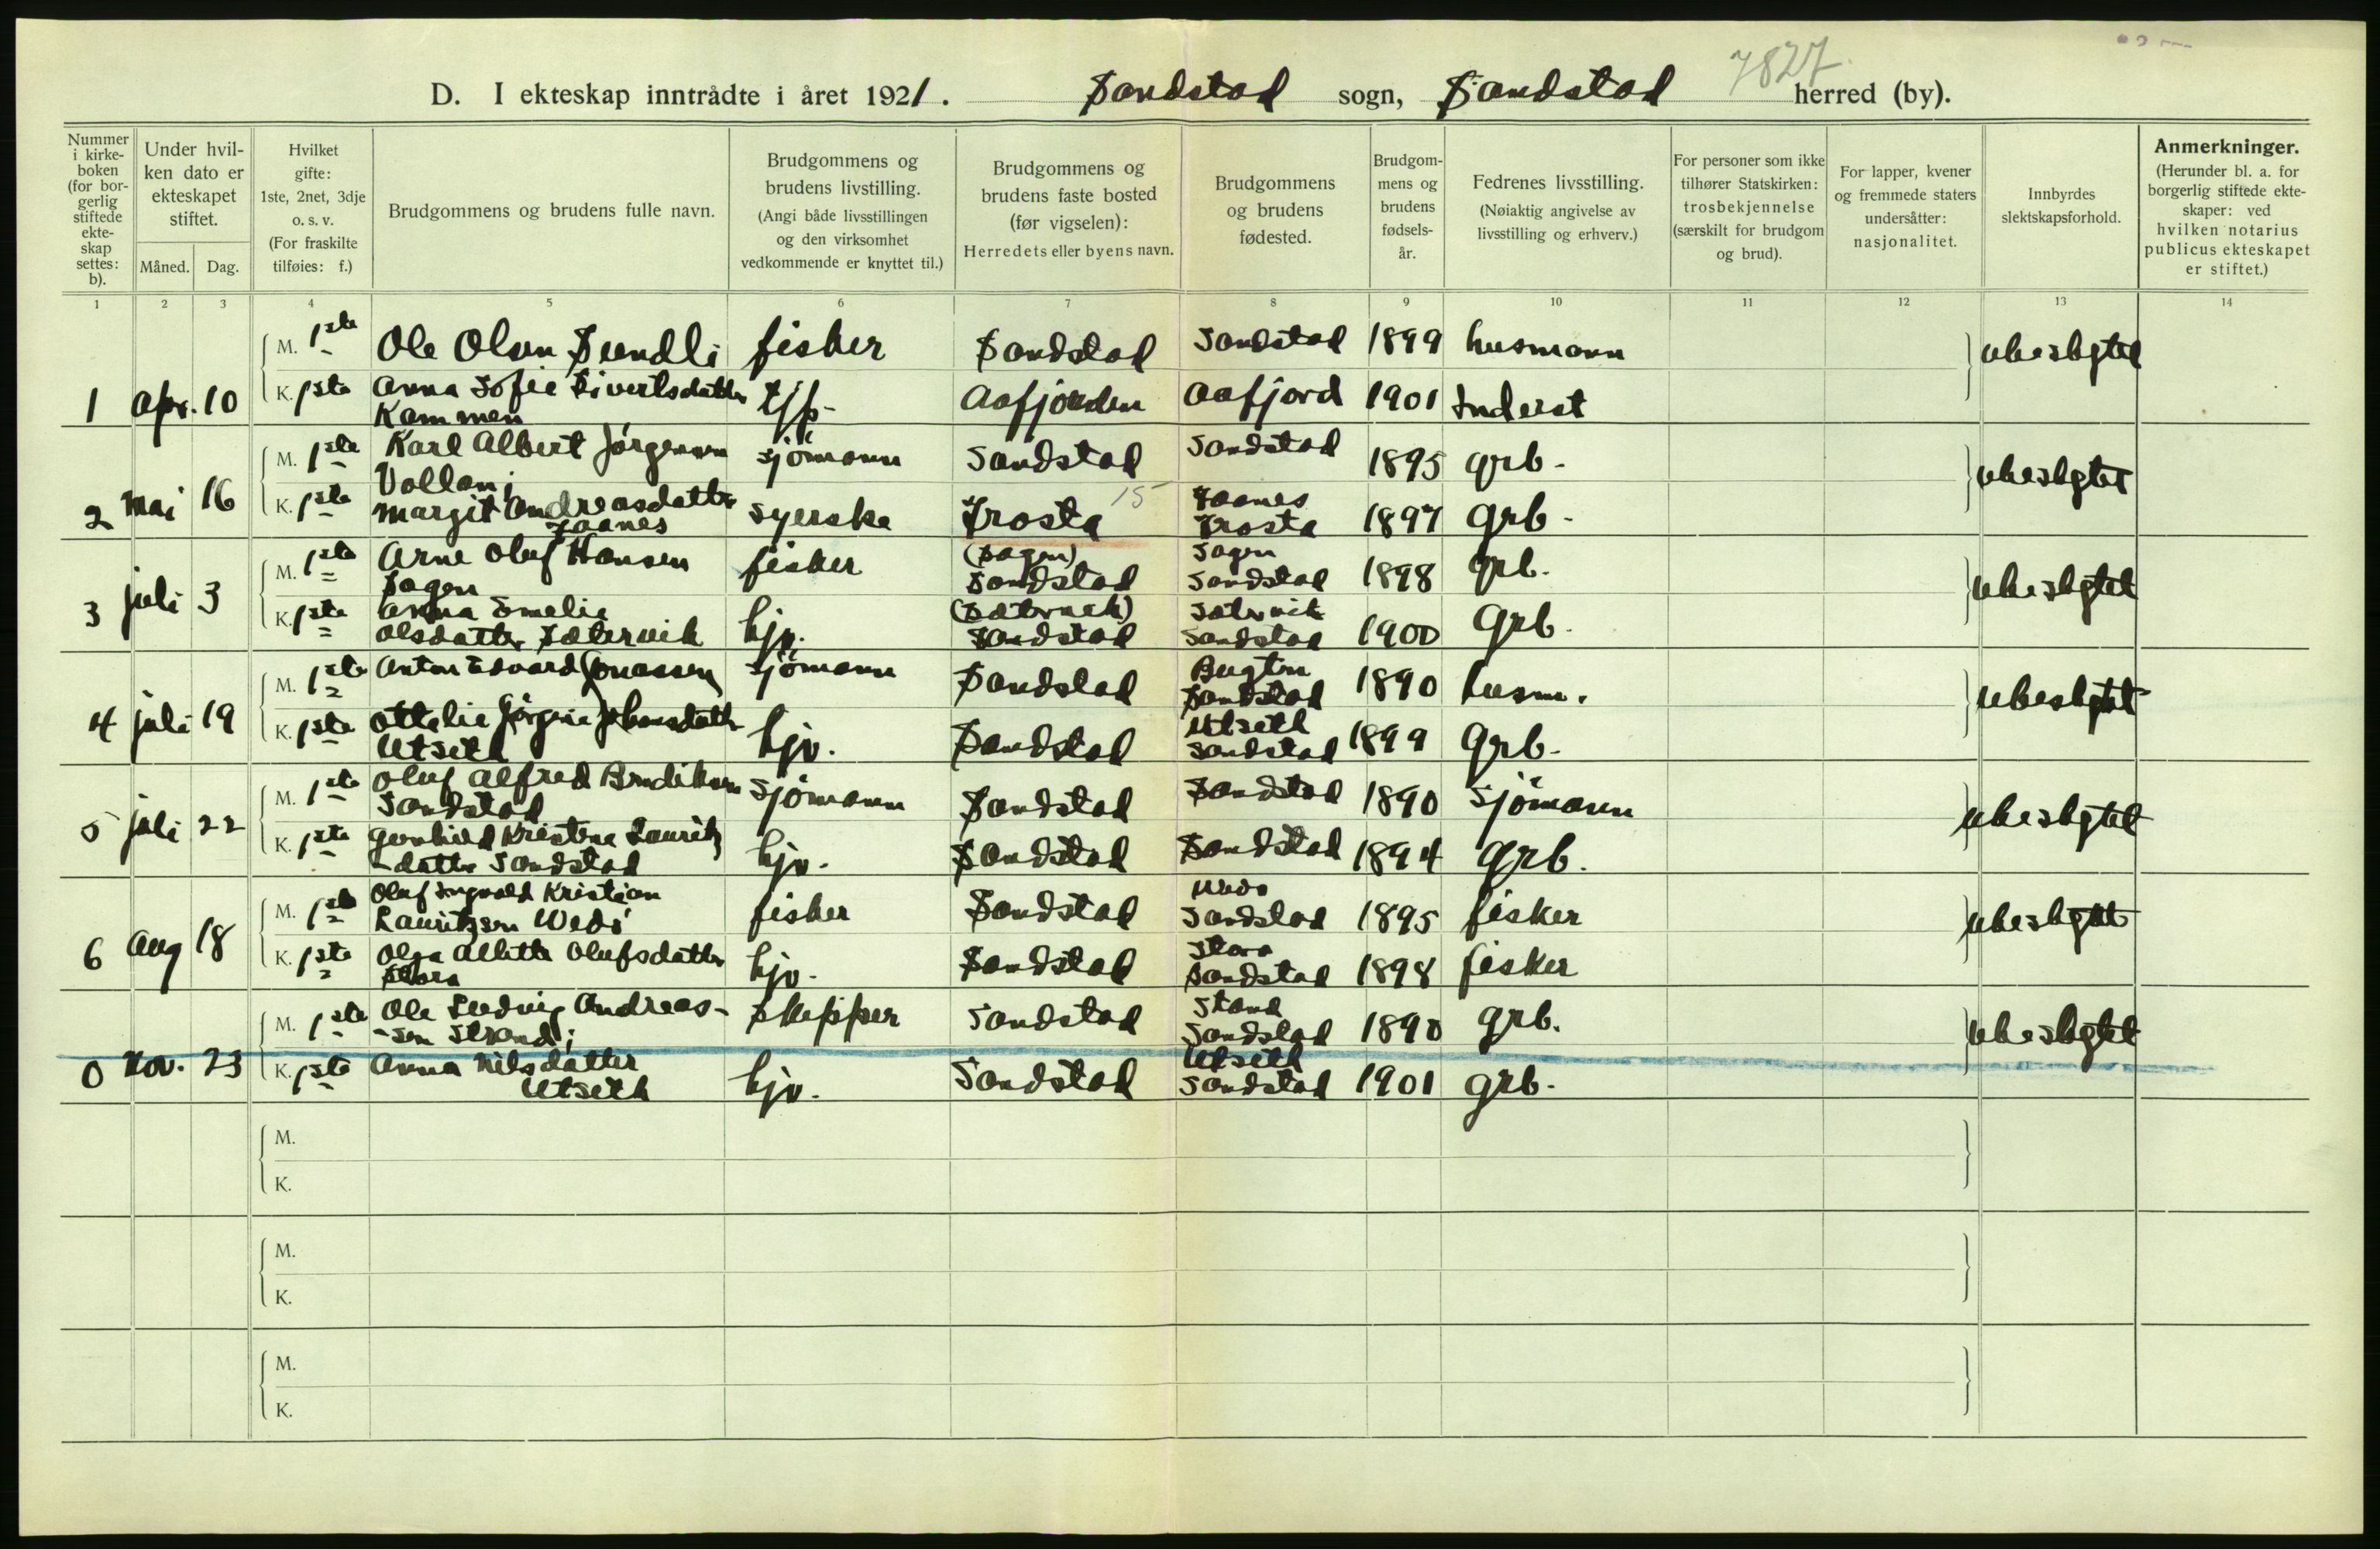 7827.
D. I ekteskap inntrådte i året 1921. Sandstad sogn, Sandstad herred (by).
Nummer i kirke-boken (for bor-gerlig stiftede ekte-skap settes: b).
Under hvil-ken dato er ekteskapet stiftet.
Måned. Dag.
Hvilket gifte: 1ste, 2net, 3dje o. s. v. (For fraskilte tilføies: f.)
Brudgommens og brudens fulle navn.
Brudgommens og brudens livstilling. (Angi både livsstillingen og den virksomhet vedkommende er knyttet til.)
Brudgommens og brudens faste bosted (før vigselen): Herredets eller byens navn.
Brudgommens og brudens fødested.
Brudgom-mens og brudens fødsels-år.
Fedrenes livsstilling. (Nøiaktig angivelse av livsstilling og erhverv.)
For personer som ikke tilhører Statskirken: trosbekjennelse (særskilt for brudgom og brud).
For lapper, kvener og fremmede staters undersåtter: nasjonalitet.
Innbyrdes slektskapsforhold.
Anmerkninger. (Herunder bl. a. for borgerlig stiftede ekte-skaper: ved hvilken notarius publicus ekteskapet er stiftet.)
1 2 3 4 5 6 7 8 9 10 11 12 13 14
M. 1ste Ole Olsen Sundli fisker Sandstad Sandstad 1899 husmann ubeslgtet
1 Apr. 10 K. 1ste Anna Sofie Sivertsdatter Kammen Aafjorden Aafjord 1901 Inderst
M. 1ste Karl Albert Jørgensen Vollan sjömann Sandstad Sandstad 1895 grb. ubeslgtet
2 mai 16 K. 1ste Margit Andreasdatter Faanes syerske Frosta 15 Faanes Frosta 1897 grb.
M. 1ste Arne Oluf Hansen Sagen fisker (Sagen) Sandstad Sagen Sandstad 1898 grb. ubeslgtet
3 juli 3 K. 1ste Anna Emelie Olsdatter Sætervik hjv. (Sætervik) Sandstad Sætervik Sandstad 1900 Grb.
M. 1ste Anton Edvard Jonassen sjömann Sandstad Bugten Sandstad 1890 husm. ubeslgtet
4 juli 19 K. 1ste Ottelie Jørgine Johansdatter Utseth hjv. Sandstad Utseth Sandstad 1899 Grb.
M. 1ste Oluf Alfred Bendiksen Sandstad sjömann Sandstad Sandstad 1890 sjömann ubeslgtet
5 juli 22 K. 1ste Gunhild Kristine Lauritz-datter Sandstad hjv. Sandstad Sandstad 1894 grb.
M. 1ste Oluf Ingvald Kristian Lauritzsen Wedø fisker Sandstad Wedø Sandstad 1895 fisker ubeslgtet
6 Aug 18 K. 1ste Olga Albitte Olufsdatter Stora hjv. Sandstad Stora Sandstad 1898 fisker
M. 1ste Ole Ludvig Andreas-sen Strand skipper Sandstad Stand Sandstad 1890 grb. ubeslgtet
0 Nov. 23 K. 1ste Anna Nilsdatter Utseth hjv. Sandstad Utseth Sandstad 1901 grb.
M.
K.
M.
K.
M.
K.